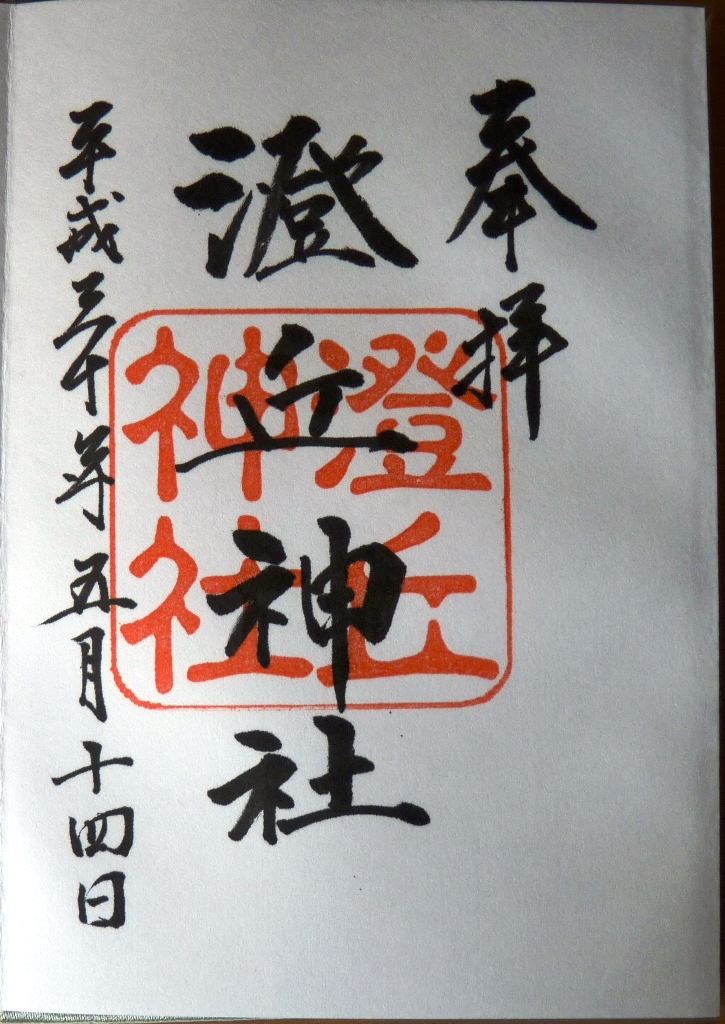 奉拝
澄丘神社
澄丘
神社
平成三十年五月十四日